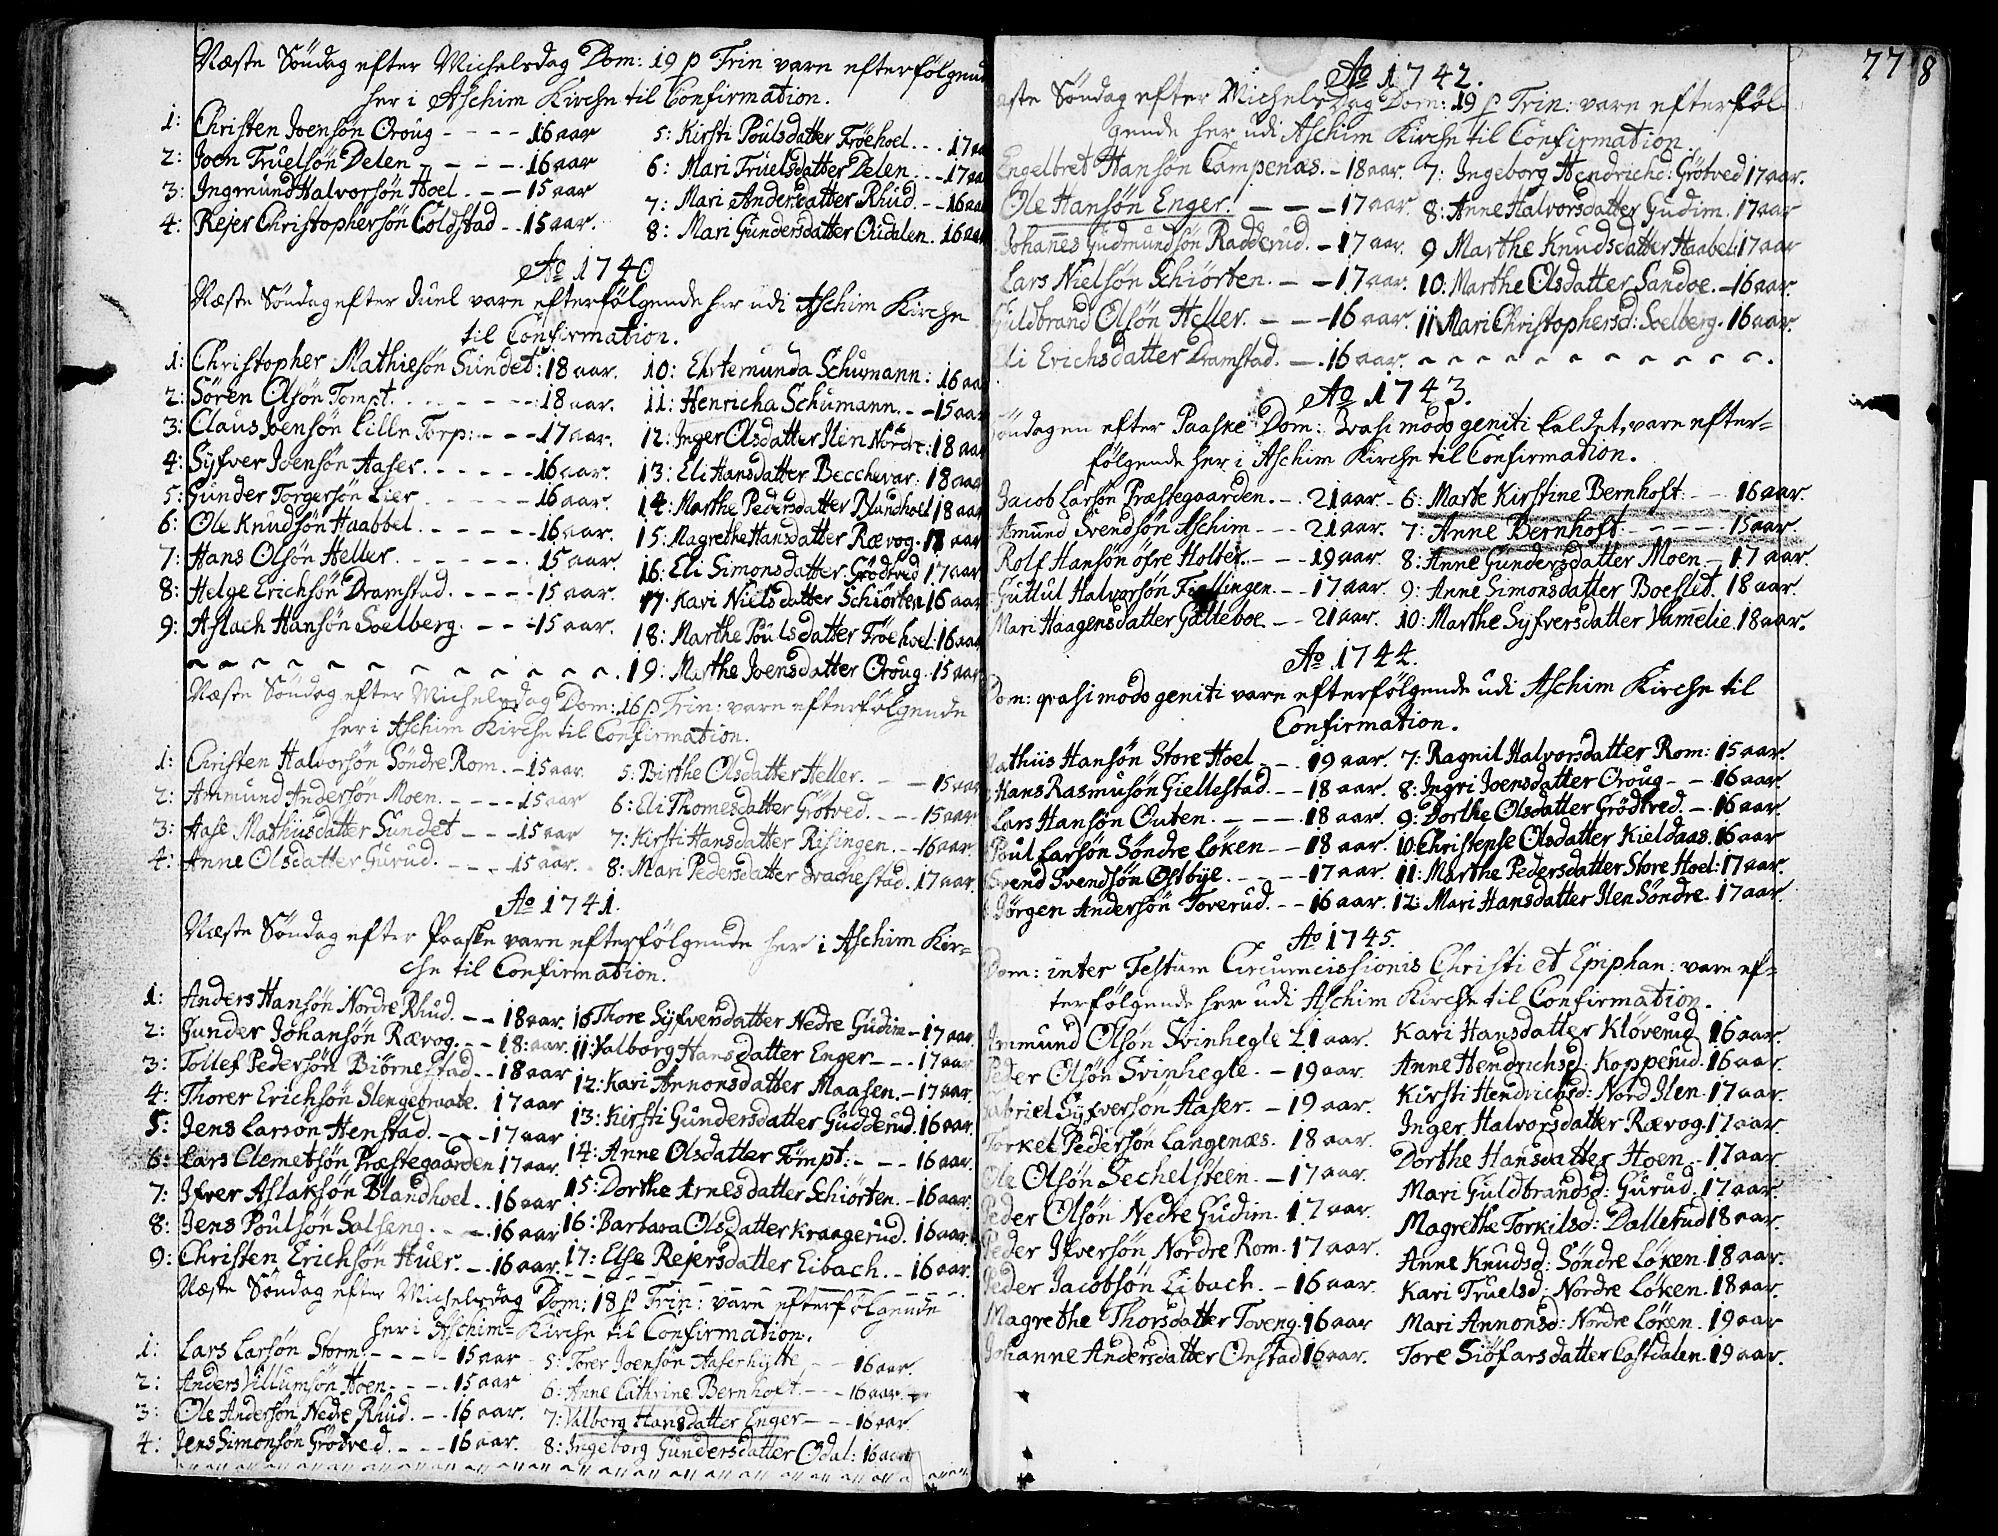 Næste Söndag efter Michelsdag Dom: 19 p Trin vare efterfölgende
her i Aschim Kirche til Confirmation.
1: Christen Joensön Oroug - - - - 16 aar
2: Joen Truelsön Delen - - - - 16 aar
3: Ingmund Halvorsön Hoel - - - 15 aar
4: Rejer Christophersön Coldstad - - 15 aar.
5: Kirsti Poulsdatter Fröehoel - - - 17 aar
6: Mari Truelsdatter Delen - - - 17 aar
7: Mari Andersdatter Rhud - - - 16 aar
8: Mari Gundersdatter Oudalen. 16 aar
Ao 1740
Næste Söndag efter Juel vare efterfölgende her udi Aschim Kirche
til Confirmation.
1: Christopher Mathiesön Sundet: 18 aar.
2: Sören Olsön Tompt. - - - - 18 aar.
3: Claus Joensön Lille Torp: - - - 17 aar.
4: Syfver Joensön Aaser. - - - - 16 aar.
5: Gunder Torgersön Lier - - - - 16 aar.
6: Ole Knudsön Haabbel. - - - - 16 aar.
7: Hans Olsön Heller. - - - - 15 aar.
8: Helge Erichsön Dramstad. - - - - 15 aar.
9: Aslach Hansön Soelberg. - - - 15 aar.
10: Ehrtemunda Schumann: 16 aar
11: Henricha Schumann. - - 15 aar
12: Inger Olsdatter Ilen Nördr: 18 aar
13: Eli Hansdatter Becchevar: 18 aar
14: Marthe Pedersdatter Blandhoel 18 aar
15: Magrethe Hansdatter Rævog. 18 aar
16: Eli Simonsdatter Grödtved 17 aar
17: Kari Nielsdatter Schiörten 16 aar
18: Marthe Poulsdatter Fröehoel: 16 aar
19: Marthe Joensdatter Oroug. 15 aar
Næste Söndag efter Michelsdag Dom: 16 p. Trin: vare efterfölgende
her i Aschim Kirche til Confirmation.
1: Christen Halvorsön Söndre Rom. - 15 aar
2: Ammund Andersön Moen. - - - - 15 aar
3: Aase Mathiisdatter Sundet - - - 15 aar
4: Anne Olsdatter Gurud. - - - 15 aar.
5: Birthe Olsdatter Heller. - - - 15 aar
6: Eli Thomesdatter Grötved. - - - 15 aar
7: Kirsti Hansdatter Risingen. - - 16 aar.
8: Mari Pedersdatter Drachestad. 17 aar
Ao 1741.
Næste Söndag efter Paaske vare efterfölgende her i Aschim Kir-
che til Confirmation.
1: Anders Hansön Nordre Rhud. - - 18 aar.
2: Gunder Johansön Rævog. - - - 18: aar.
3: Tollef Pedersön Biörnestad. - - 18 aar
4: Thorer Erichsön Slengebraate. 17 aar
5: Jens Larsön Henstad. - - - 17 aar
6: Lars Clemetsön Præstegaarden 17 aar.
7: Ifver Aslaksön Blandhoel. - 16 aar
8: Jens Poulsön Salseng. - - - 16 aar
9: Christen Erichsön Huer. - - 16 aar.
10 Thore Syfversdatter Nedre Gudim - 17 aar
11: Valborg Hansdatter Enger - - - 17 aar
12: Kari Annonsdatter Maasen. - 17 aar.
13: Kirsti Gundersdatter Gudderud. 16 aar.
14: Anne Olsdatter Tömpt: - - - 16 aar.
15: Dorthe Arnesdatter Schiörten. - 16 aar.
16: Barbara Olsdatter Kraagerud. 16 aar.
17: Else Rejersdatter Eibach. - 16 aar.
Næste Söndag efter Michelsdag Dom: 18 p Trin: vare efterfölgende
her i Aschim Kirche til Confirmation.
1: Lars Larsön Storm - - - - 15 aar
2: Anders Villumsön Hoen - - - 15 aar
3: Ole Andersön Nedre Rhud. - - 16 aar.
4: Jens Simonsön Grötved. - - - 16 aar.
5: Torer Joensön Aaserhytte - - 16 aar.
6: Anne Cathrine Bernhoft - - - 16 aar.
7: Valborg Hansdatter Enger - - - 16 aar
8: Ingeborg Gundersdatter Odal: 16 aar
778
Ao 1742.
æste Söndag efter Michelsdag Dom: 19 p Trin: vare efterföl-
gende her udi Aschim Kirche til Confirmation.
Engelbret Hansön Campenæs. - 18 aar.
Ole Hansön Enger. - - - 17 aar.
Johannes Gudmundsön Radderud. - 17 aar.
Lars Nielsön Schiörten. - - 17 aar.
Guldbrand Olsön Heller. - - - 16 aar.
Eli Erichsdatter Dramstad. - 16 aar.
7: Ingeborg Hendrichsd: Grötved 17 aar.
8: Anne Halvorsdatter Gudim. 17 aar
9 Marthe Knudsdatter Haabel: 17 aar
10: Marthe Olsdatter Sandoe. - 16 aar.
11 Mari Christophersd: Soelberg. 16 aar.
Ao 1743.
öndagen efter Paaske Dom: Qvasi modo geniti kaldet, vare efter-
fölgende her i Aschim Kirche til Confirmation.
Jacob Larsön Præstegaarden. - - 21 aar -
Amund Svendsön Aschim - - - 21 aar.
Rolf Hansön öfre Holter. - - - 19 aar.
Guttul Halvorsön Fiellingen - - 17 aar
Mari Haagensdatter Gatteboe - - 21 aar.
6: Marte Kirstine Bernhoft: - - 16 aar.
7: Anne Bernhoft - - - - 15 aar.
8: Anne Gundersdatter Moen - 17 aar.
9: Anne Simonsdatter Boesled. 18 aar.
10: Marthe Syfversdatter Vammelie. 18 aar.
Ao 1744.
Dom: qvasi modo geniti vare efterfölgende udi Aschim Kirche til
Confirmation.
Mathiis Hansön Store Hoel - - - 19 aar.
Hans Rasmusön Giellestad. - - 18 aar.
Lars Hansön Outen. - - - - 18 aar.
Poul Larsön Söndre Löken - - 18 aar.
Svend Svendsön Ostbye. - - - - 17 aar.
Jörgen Andersön Toverud. - - 16 aar.
7: Ragnil Halvorsdatter Rom: 15 aar.
8: Ingri Joensdatter Oroug - - 16 aar.
9: Dorthe Olsdatter Grödtved. - 16 aar.
10: Christense Olsdatter Kieldaas. 16 aar
11: Marthe Pedersdatter Store Hoel: 17 aar.
12: Mari Hansdatter Ilen Söndre. 17 aar.
Ao 1745.
Dom: inter Festum Circumcissionis Christi et Epiphan: vare ef-
terfölgende her udi Aschim Kirche til Confirmation.
Ammund Olsön Svinhegle 21 aar.
Peder Olsön Svinhegle. - 19 aar.
Gabriel Syfversön Aaser. - 19 aar.
Torkel Pedersön Langenæs. 18 aar.
Ole Olsön Sechelsteen. - 17 aar.
Peder Olsön Nedre Gudim. 17 aar.
Peder Ifversön Nordre Rom. 17 aar.
Peder Jacobsön Eibach. - 16 aar.
Magrethe Thorsdatter Toveng. 16 aar
Johanne Andersdatter Onstad 16 aar.
Kari Hansdatter Klöverud 16 aar.
Anne Hendrichsd: Kopperud. 16 aar.
Kirsti Hendrichsd: Nord Ilen. 17 aar.
Inger Halvorsdatter Rævog. 17 aar.
Dorthe Hansdatter Hoen. - 17 aar.
Mari Guldbrandsd: Gurud. 17 aar.
Magrethe Torkilsd: Dallerud 18 aar.
Anne Knudsd: Söndre Löken. 18 aar.
Kari Truelsd: Nordre Löken. 18 aar.
Mari Annonsd: Nordre Löken. 19 aar
Tore Siöfarsdatter Castdalen. 19 aar.